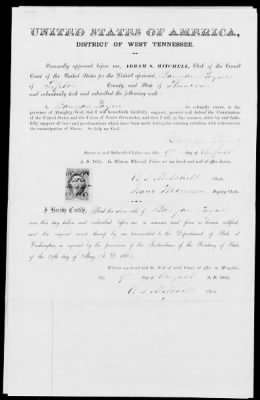 UNITED STATES OF AMERICA,
DISTRICT OF WEST TENNESSEE.
Personally appeared before me, ABRAM S. MITCHELL, Clerk of the Circuit
Court of the United States for the District aforesaid,
of Tipton County, and State of Tennessee
and voluntarily took and subscribed the following oath:
I, do solemnly swear, in the
presence of Almighty God, that I will henceforth faithfully support, protect and defend the Constitution
of the United States and the Union of States thereunder, and that I will, in like manner, abide by and faith-
fully support all laws and proclamations which have been made during the existing rebellion with reference to
the emancipation of Slaves: So help me God.
Sworn to and Subscribed before me, this 9th day of August
A. D. 1865. In Witness Whereof, I have set my hand and seal of office hereto.
A S Mitchell Clerk.
Deputy Clerk.
I Hereby Certify, That the above oath of
was this day taken and subscribed before me
and the original record thereof by me transmitted to the Department of State at
Washington, as required by the provisions of the Instructions of the Secretary of State
of the 29th day of May, A. D. 1865.
Witness my hand and the Seal of said Court, at office in Memphis,
this 9th day of August A. D. 1865.
A S Mitchell Clerk